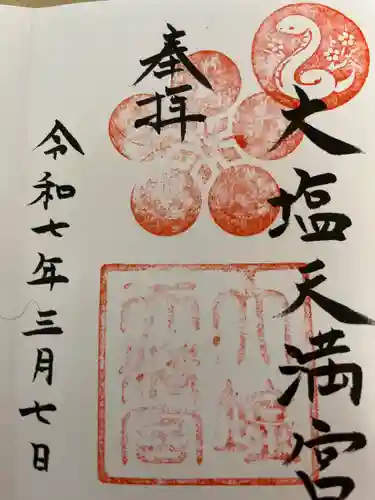 大塩天満宮
奉拝
令和七年三月七日